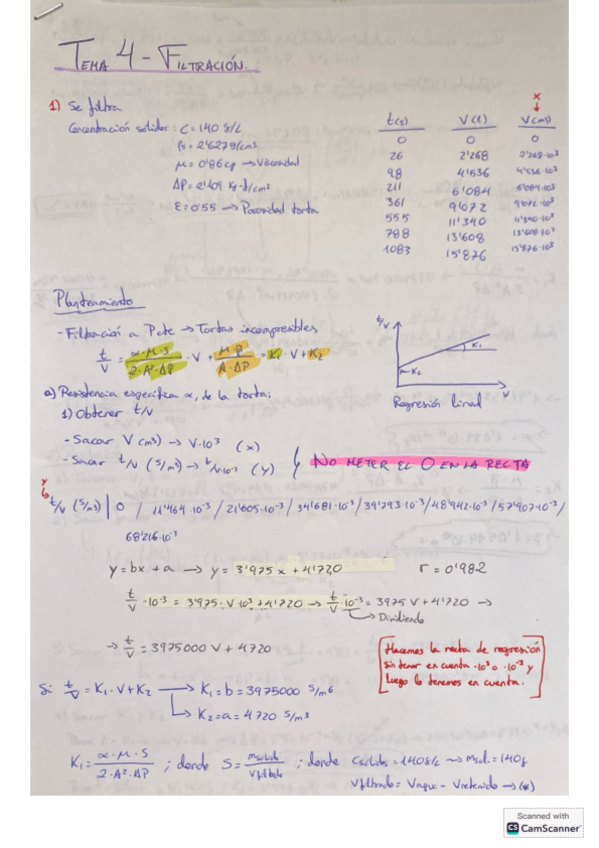 TEMA 4 - FILTRACIÓN
1) Se filtra
Concentración solidos: C = 140 g/L
ρs = 2'6279/cm3
μ = 0'86cp → Viscosidad
ΔP = 2'109 Kg·f/cm²
ε = 0'55 → Porosidad torta
x
↓
t(s) V(l) V(m3)
0 0 0
26 2'268 2'268·10³
98 4'536 4'536·10³
211 6'084 6'084·10³
361 9'072 9'072·10³
555 11'340 11'340·10³
788 13'608 13'608·10³
1083 15'876 15'876·10³
Planteamiento
- Filtración a P cte → Tortas incompresibles
t/V = α·μ·S / 2·A²·ΔP · V + μ·β / A·ΔP = K1 · V + K2
t/V
K1
K2
V
Regresión lineal
a) Resistencia especifica α, de la torta;
1) Obtener t/V
- Sacar V (m3) → V·10³ (x)
- Sacar t/V (s/m3) → t/V·10⁻³ (y)
NO METER EL 0 EN LA RECTA
y
t/V (s/m3) | 0 / 11'464·10⁻³ / 21'605·10⁻³ / 34'681·10⁻³ / 39'793·10⁻³ / 48'942·10⁻³ / 57'907·10⁻³ /
68'216·10⁻³
y = bx + a → y = 3'975 x + 4'720 r = 0'982
t/V · 10⁻³ = 3'975·V·10³ + 4'720 → t/V 10⁻³ = 3975 V + 4'720 →
↳ Dividiendo
→ t/V = 3975000 V + 4720
Hacemos la recta de regresión
sin tener en cuenta ·10³ o ·10⁻³ y
luego lo tenemos en cuenta.
Si t/V = K1·V + K2 → K1 = b = 3975000 s/m6
↳ K2 = a = 4720 s/m3
K1 = α·μ·S / 2·A²·ΔP ; donde S = msolido / Vfiltrado ; donde Csolidos = 140g/L → msol. = 140g
Vfiltrado = Vagua - Vretenido → (*)
Scanned with
CS CamScanner